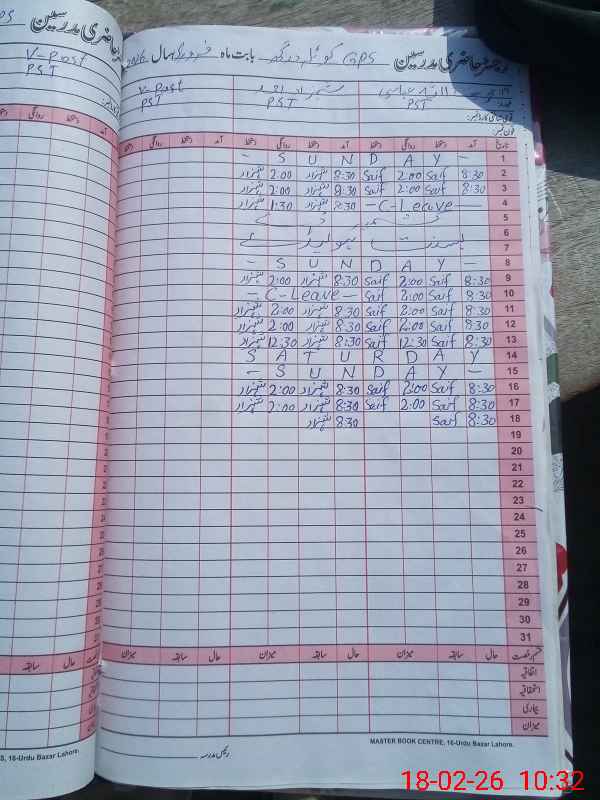 رجسٹر حاضری مدرسین GPS کوٹلہ درگئی بابت ماہ فروری سال 2026
V-Post
PST
PST
PST
V-Post
PST
فون نمبر:
تاریخ آمد دستخط روانگی دستخط آمد دستخط روانگی دستخط آمد دستخط روانگی دستخط
1 - S U N D A Y -
2 8:30 Saif 2:00 Saif 8:30 شہزاد 2:00 شہزاد
3 8:30 Saif 2:00 Saif 8:30 شہزاد 2:00 شہزاد
4 - C-Leave - 8:30 شہزاد 1:30 شہزاد
5
6
7
8 - S U N D A Y -
9 8:30 Saif 2:00 Saif 8:30 شہزاد 2:00 شہزاد
10 8:30 Saif 2:00 Saif - C-Leave -
11 8:30 Saif 2:00 Saif 8:30 شہزاد 2:00 شہزاد
12 8:30 Saif 2:00 Saif 8:30 شہزاد 2:00 شہزاد
13 8:30 Saif 12:30 Saif 8:30 شہزاد 12:30 شہزاد
14 S A T U R D A Y
15 - S U N D A Y -
16 8:30 Saif 2:00 Saif 8:30 شہزاد 2:00 شہزاد
17 8:30 Saif 2:00 Saif 8:30 شہزاد 2:00 شہزاد
18 8:30 Saif 8:30 شہزاد
19
20
21
22
23
24
25
26
27
28
29
30
31
قسم رخصت حال سابقہ میزان حال سابقہ میزان حال سابقہ میزان
اتفاقیہ
استحقاقیہ
بیماری
میزان
MASTER BOOK CENTRE, 16-Urdu Bazar Lahore.
رئیس مدرسہ
S, 16-Urdu Bazar Lahore.
18-02-26 10:32